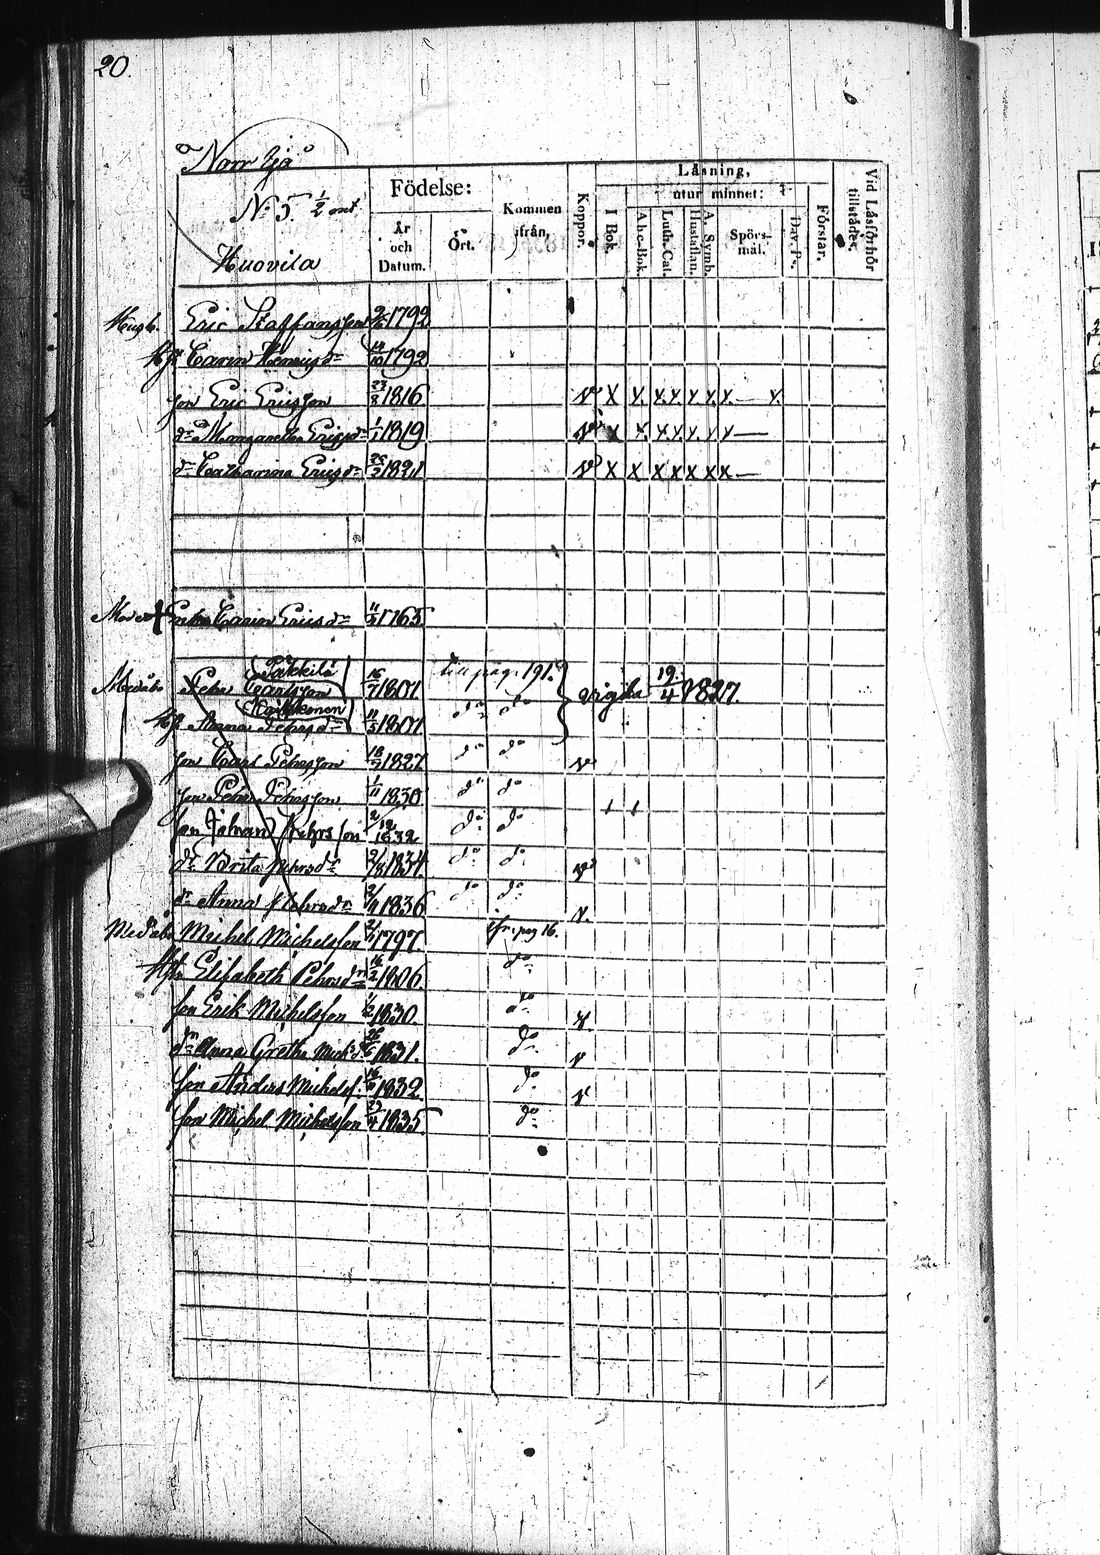 20.
Norr Ejä
Nº 5. 1/2 mt
Huovila
Födelse:
År och Datum.
Ort.
Kommen ifrån,
Koppor.
Låsning,
utur minnet:
I Bok.
A.b.c-Bok.
Luth. Cat.
Hustaflan.
A. Symb.
Spörs-mål.
Dav. Ps.
Förstår.
Vid Låsförhör tillstädes.
Eric Staffansson 1792
Hst Carin Henriksdr 1792
son Eric Ericsson 23/8 1816 v X X X X X X X — X
dr Margaretha Ericsdr 1/1 1819 v X X X X X X X —
dr Catharina Ericsdr 25/2 1821 v X X X X X X X —
Moder + Carin Ericsdr 11/2 1765
Pehr Carlsson 16/7 1801 till pag. 191. vigde 19/4 1827.
Hst Anna Pehrsdr 11/3 1801 do do
son Carl Pehrsson 18/9 1827 do do v
son Pehr Pehrsson 1/11 1830 do do
son Johan Pehrsson 2/12 1832 do do
dr Brita Pehrsdr 12/8 1834. do do v
dr Anna Pehrsdr 12/4 1836 do do v.
Medåbo Michel Michelsson 2/1 1797. ifr. pag 16.
Hst Elisabeth Pehrsdr 16/2 1806. do
son Erik Michelsson 1/2 1830. do v
dr Anna Greta Michsdr 26/5 1831. do v
son Anders Michelss. 1832 do v
son Michel Michelsson 23/4 1835 do